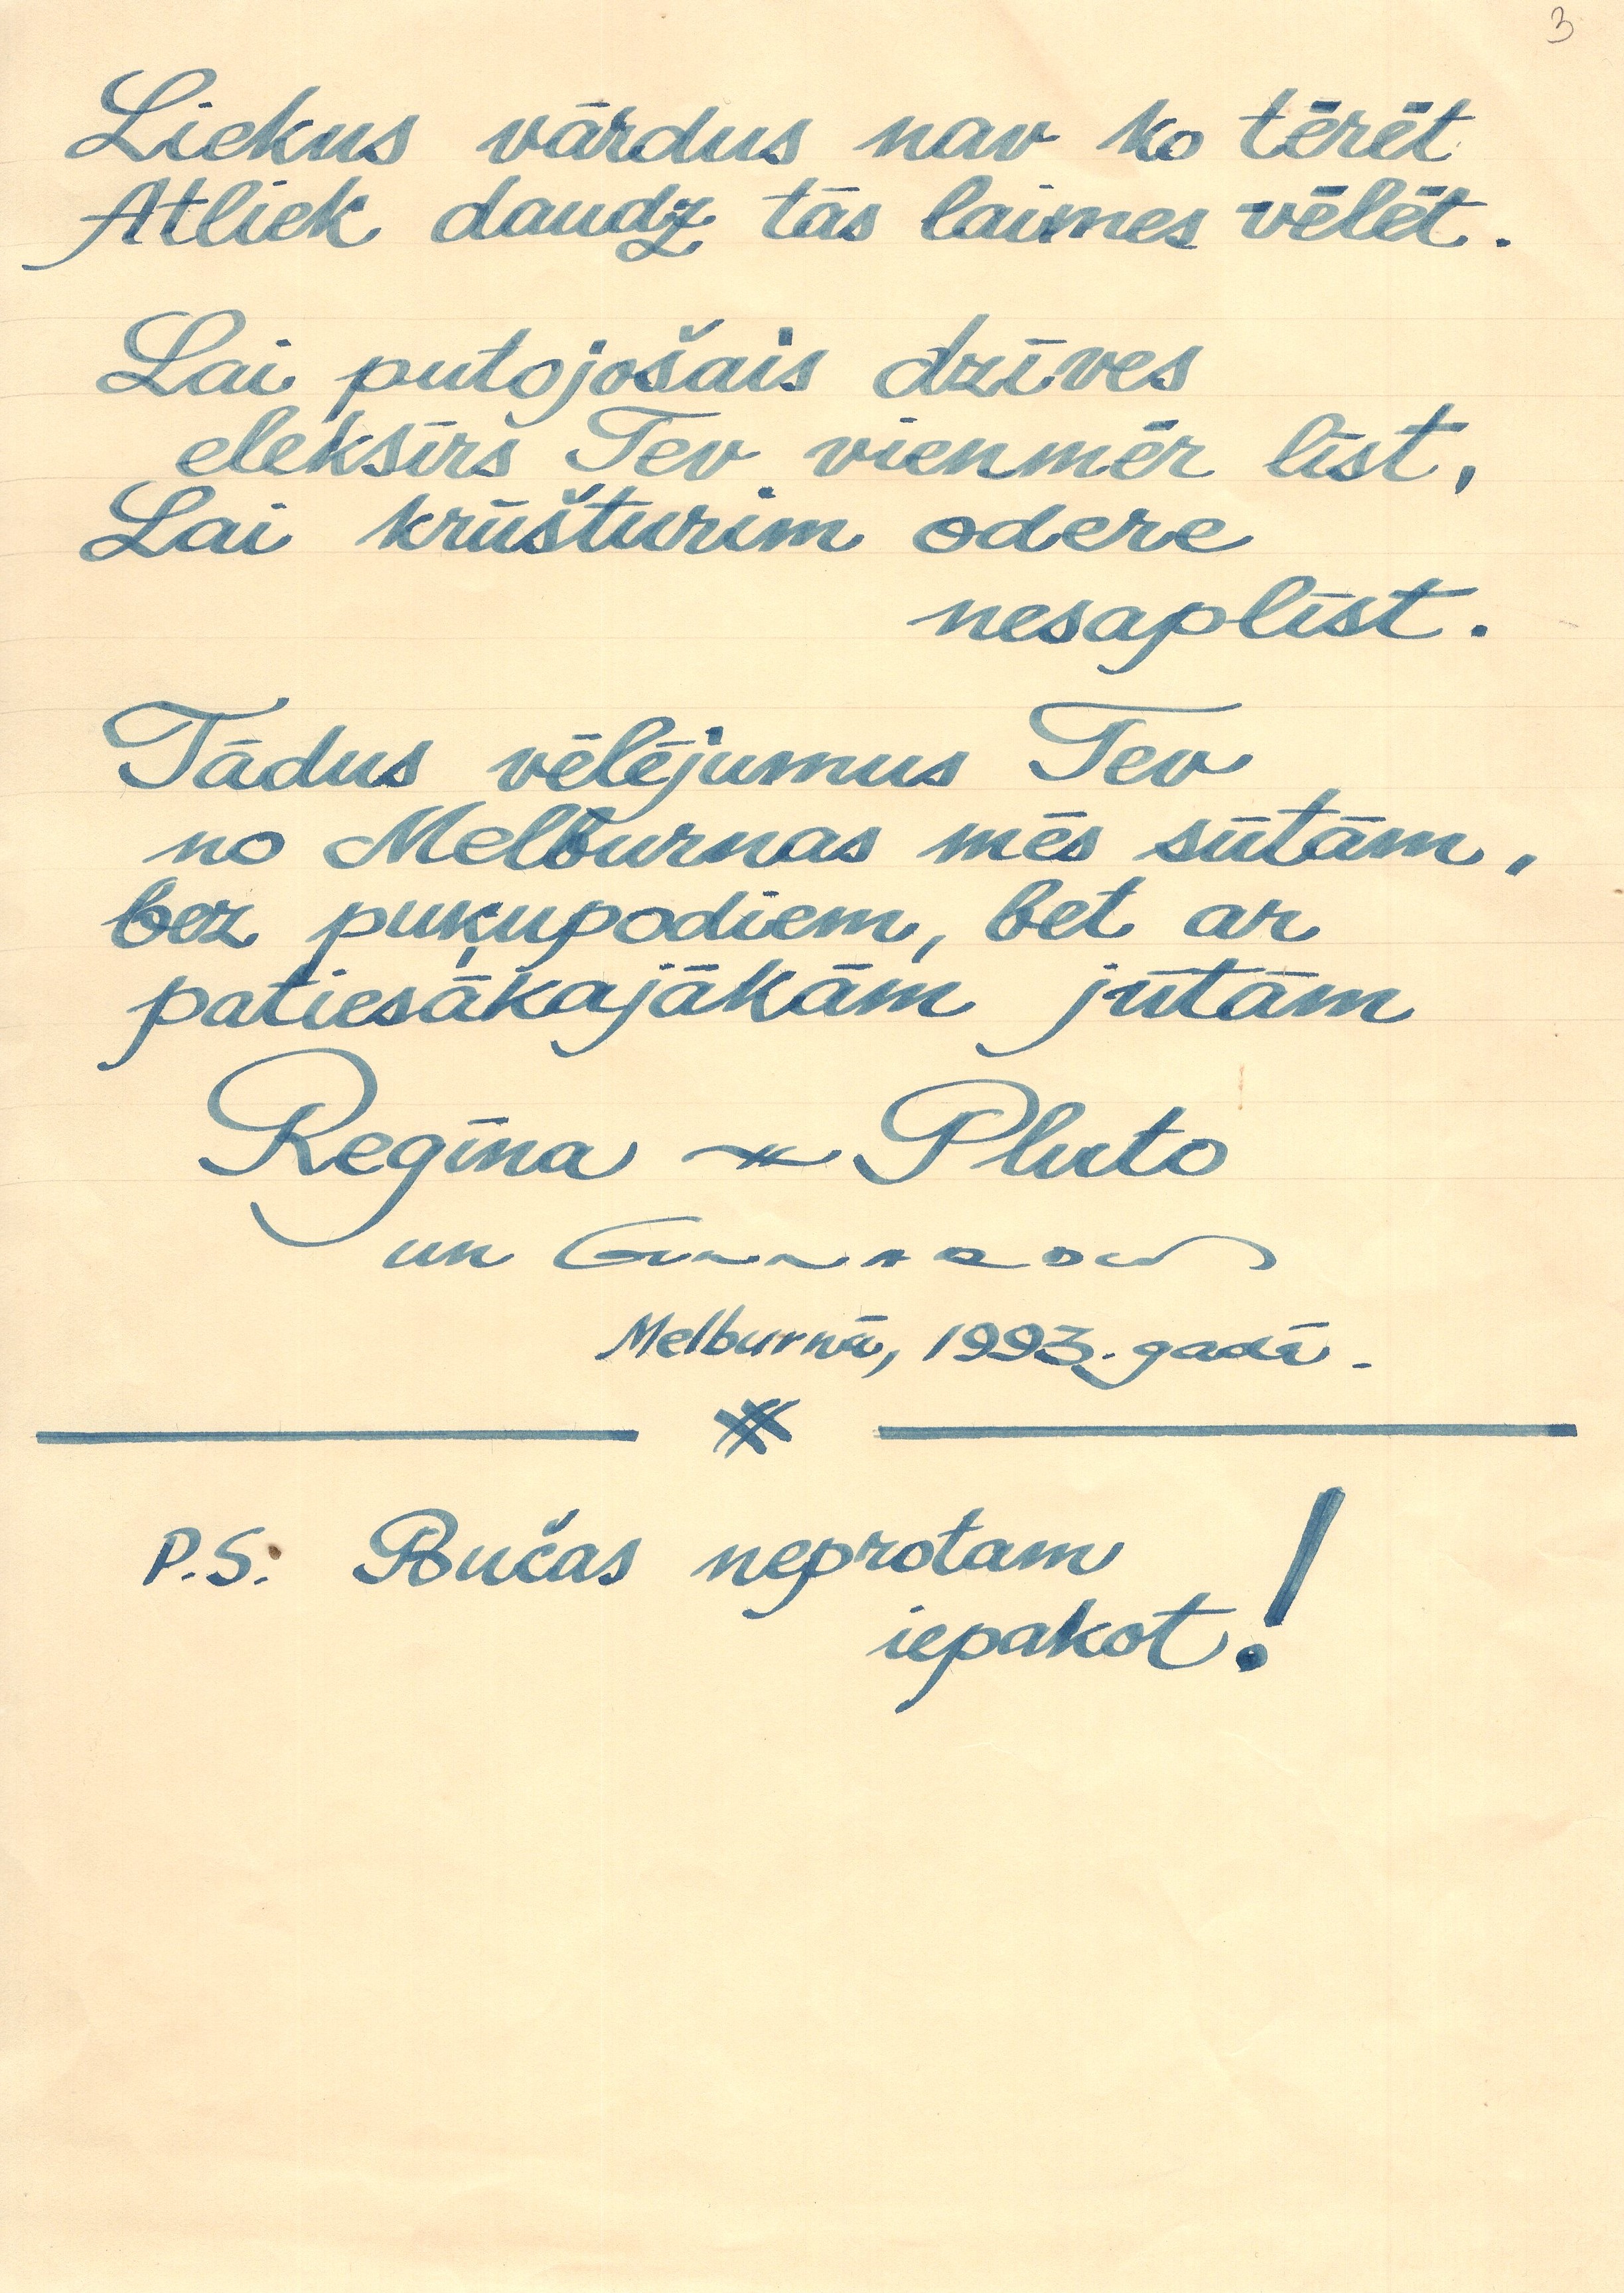 3
Liekus vārdus nav ko tērēt
Atliek daudz tās laimes vēlēt.
Lai putojošais dzīves
eleksīrs Tev vienmēr līst,
Lai krūšturim odere
nesaplīst.
Tādus vēlējumus Tev
no Melburnas mēs sūtām,
bez puķupodiem, bet ar
patiesākajākām jūtām
Regīna Pluto
un
Melburnā, 1993. gadā.
P.S. Bučas neprotam
iepakot!